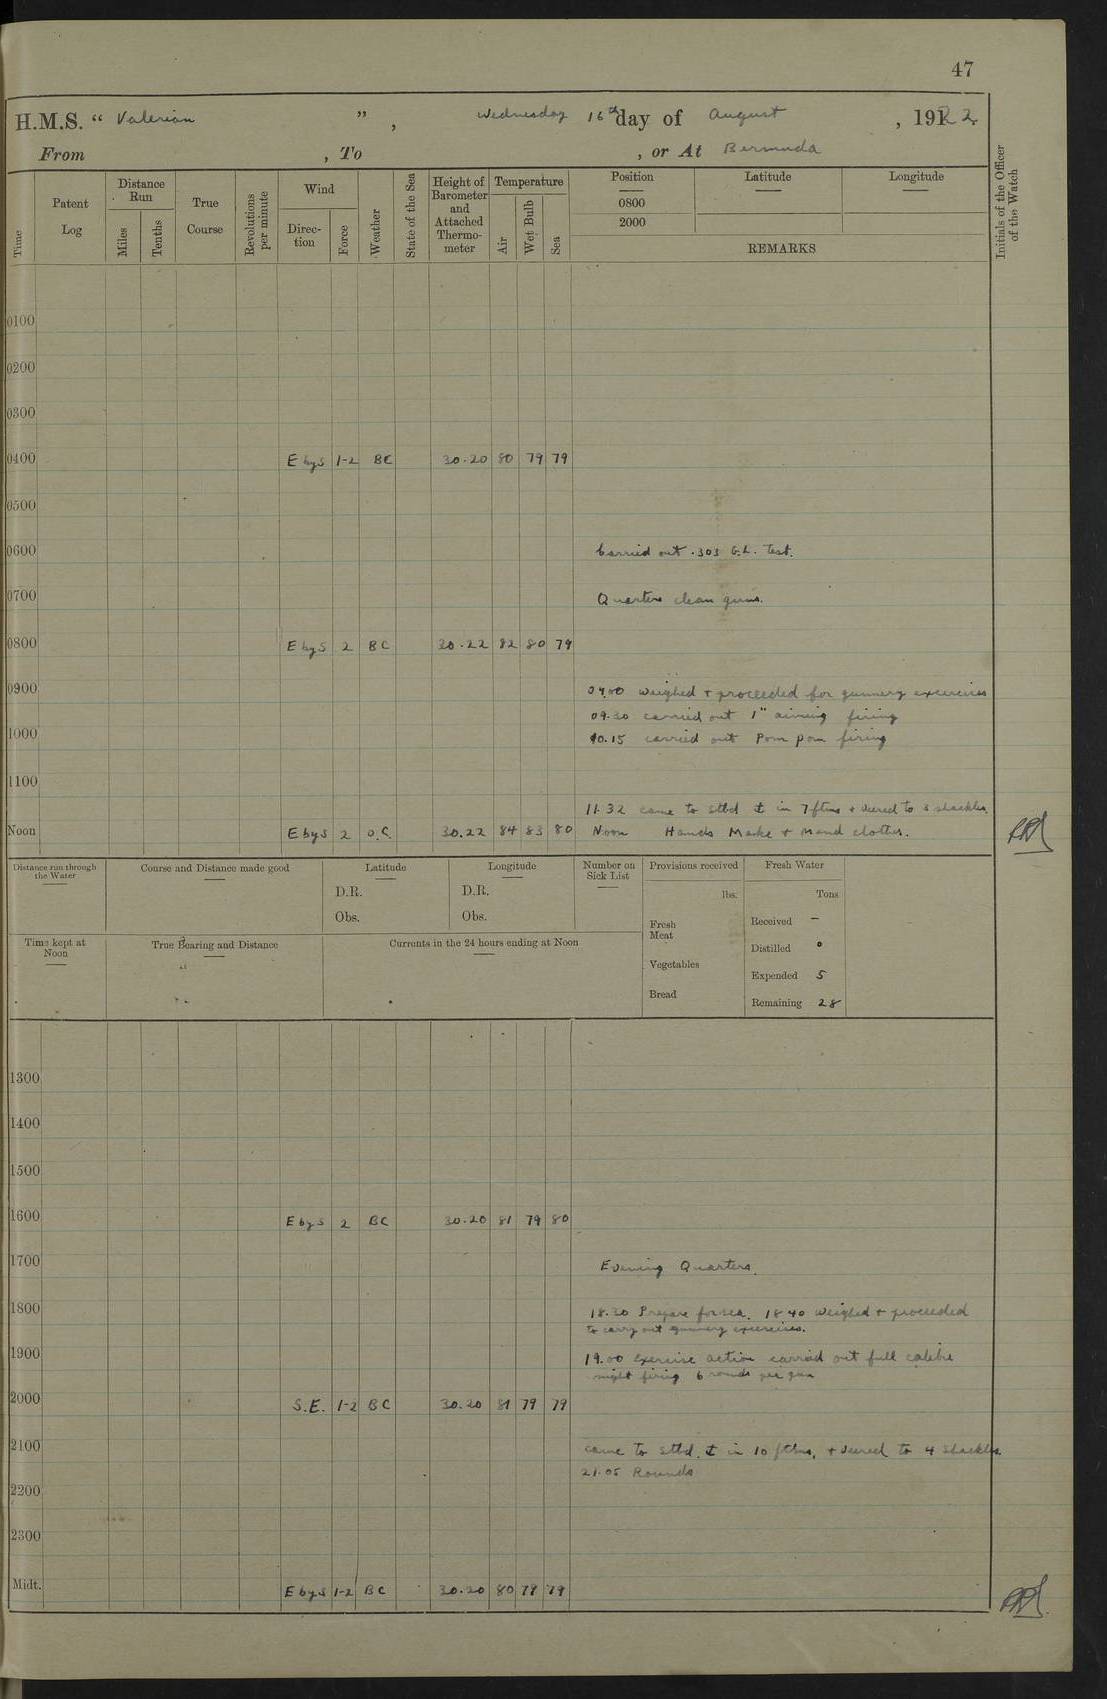 47
H.M.S. “ Valerian ” , Wednesday 16th day of August , 1922.
From , To , or At Bermuda
Time
Patent Log
Distance Run
Miles
Tenths
True Course
Revolutions per minute
Wind
Direc-tion
Force
Weather
State of the Sea
Height of Barometer and Attached Thermo-meter
Temperature
Air
Wet Bulb
Sea
Position
0800
2000
Latitude
Longitude
REMARKS
Initials of the Officer of the Watch
0100
0200
0300
0400 E by S 1-2 BC 30.20 80 79 79
0500
0600 Carried out .303 G.L. Test.
0700 Quarters clean guns.
0800 E by S 2 BC 30.22 82 80 79
0900 09.00 weighed + proceeded for gunnery excercises
09.30 carried out 1" aiming firing
1000 10.15 carried out Pom pom firing
1100
11.32 came to stbd ⚓ in 7 fthms + veered to 3 shackles.
Noon E by S 2 O.C. 30.22 84 83 80 Noon Hands Make + Mend clothes.
Distance run through the Water
Course and Distance made good
Latitude
D.R.
Obs.
Longitude
D.R.
Obs.
Number on Sick List
Provisions received
lbs.
Fresh Meat
Vegetables
Bread
Fresh Water
Tons
Received –
Distilled 0
Expended 5
Remaining 28
Time kept at Noon
True Bearing and Distance
Currents in the 24 hours ending at Noon
1300
1400
1500
1600 E by S 2 BC 30.20 81 79 80
1700 Evening Quarters.
1800 18.30 Prepare for sea. 18.40 weighed + proceeded
to carry out gunnery excercises.
1900 19.00 exercise action carried out full calibre
night firing 6 rounds per gun
2000 S.E. 1-2 BC 30.20 81 79 79
2100 came to stbd. ⚓ in 10 fthms, + veered to 4 shackles.
21.05 Rounds
2200
2300
Midt. E by S 1-2 BC 30.20 80 79 79